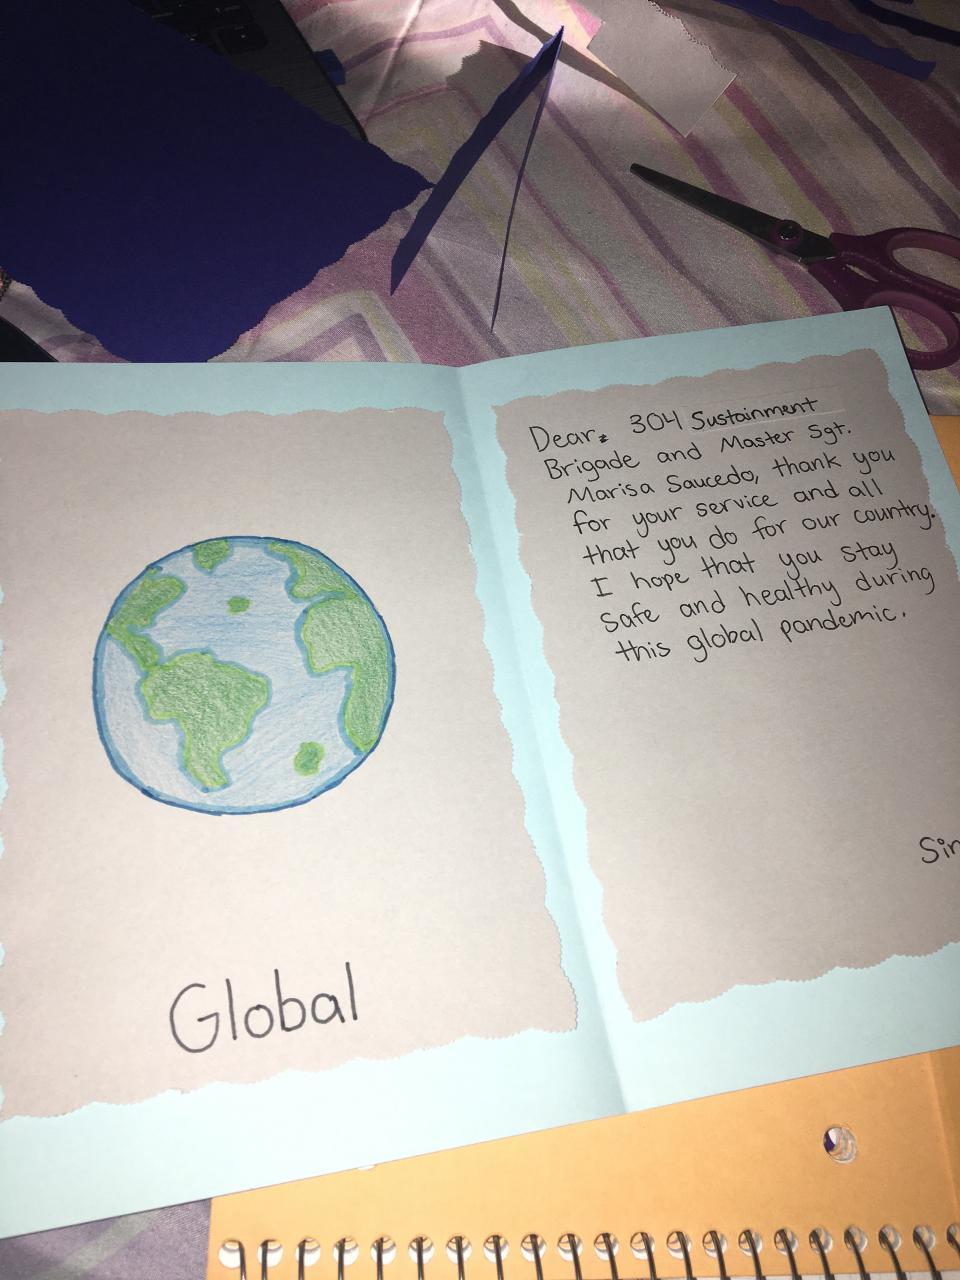 Dear: 304 Sustainment
Brigade and Master Sgt.
Marisa Saucedo, thank you
for your service and all
that you do for our country.
I hope that you stay
safe and healthy during
this global pandemic.
Sin
Global